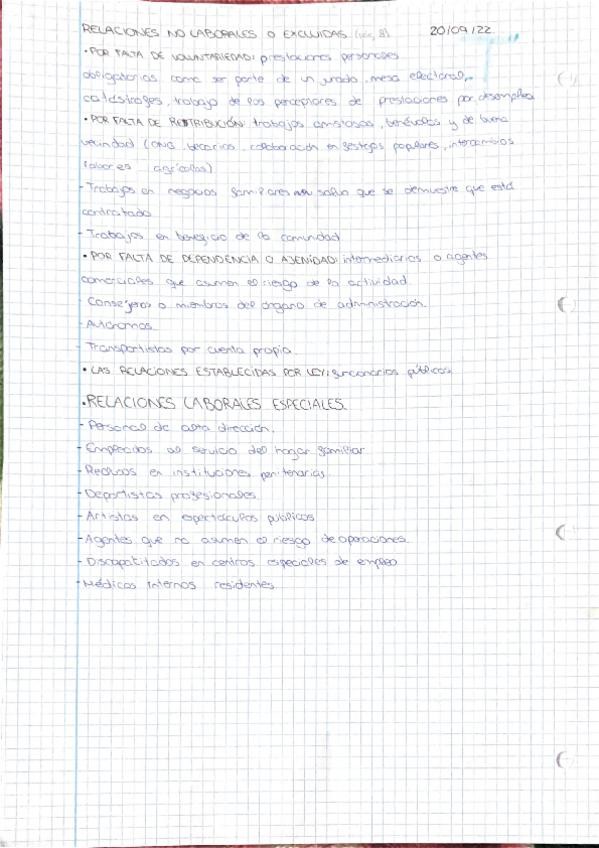 RELACIONES NO LABORALES O EXCLUIDAS (pág 8) 20/09/22
• POR FALTA DE VOLUNTARIEDAD: prestaciones personales
obligatorias como ser parte de un jurado, mesa electoral,
catástrofes, trabajo de los perceptores de prestaciones por desempleo
• POR FALTA DE RETRIBUCIÓN: trabajos amistosos, benévolos y de buena
vecindad (ONG, becarios, colaboración en festejos populares, intercambios
labores agrícolas)
- Trabajos en negocios familiares salvo que se demuestre que está
contratado
- Trabajos en beneficio de la comunidad
• POR FALTA DE DEPENDENCIA O AJENIDAD: intermediarios o agentes
comerciales que asumen el riesgo de la actividad
- Consejeros o miembros del órgano de administración.
- Autónomos.
- Transportistas por cuenta propia.
• LAS RELACIONES ESTABLECIDAS POR LEY: funcionarios públicos
• RELACIONES LABORALES ESPECIALES.
- Personal de alta dirección.
- Empleados al servicio del hogar familiar
- Reclusos en instituciones penitenarias
- Deportistas profesionales
- Artistas en espectáculos públicos
- Agentes que no asumen el riesgo de operaciones.
- Discapatitados en centros especiales de empleo
- Médicos internos residentes